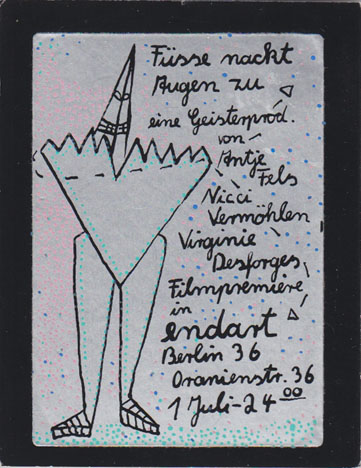 Füsse nackt
Augen zu
eine Geisterprod.
von
Antje
Fels
Nicci
Vermöhlen
Virginie
Desforges
Filmpremiere
in
endart
Berlin 36
Oranienstr. 36
1 Juli - 24 00